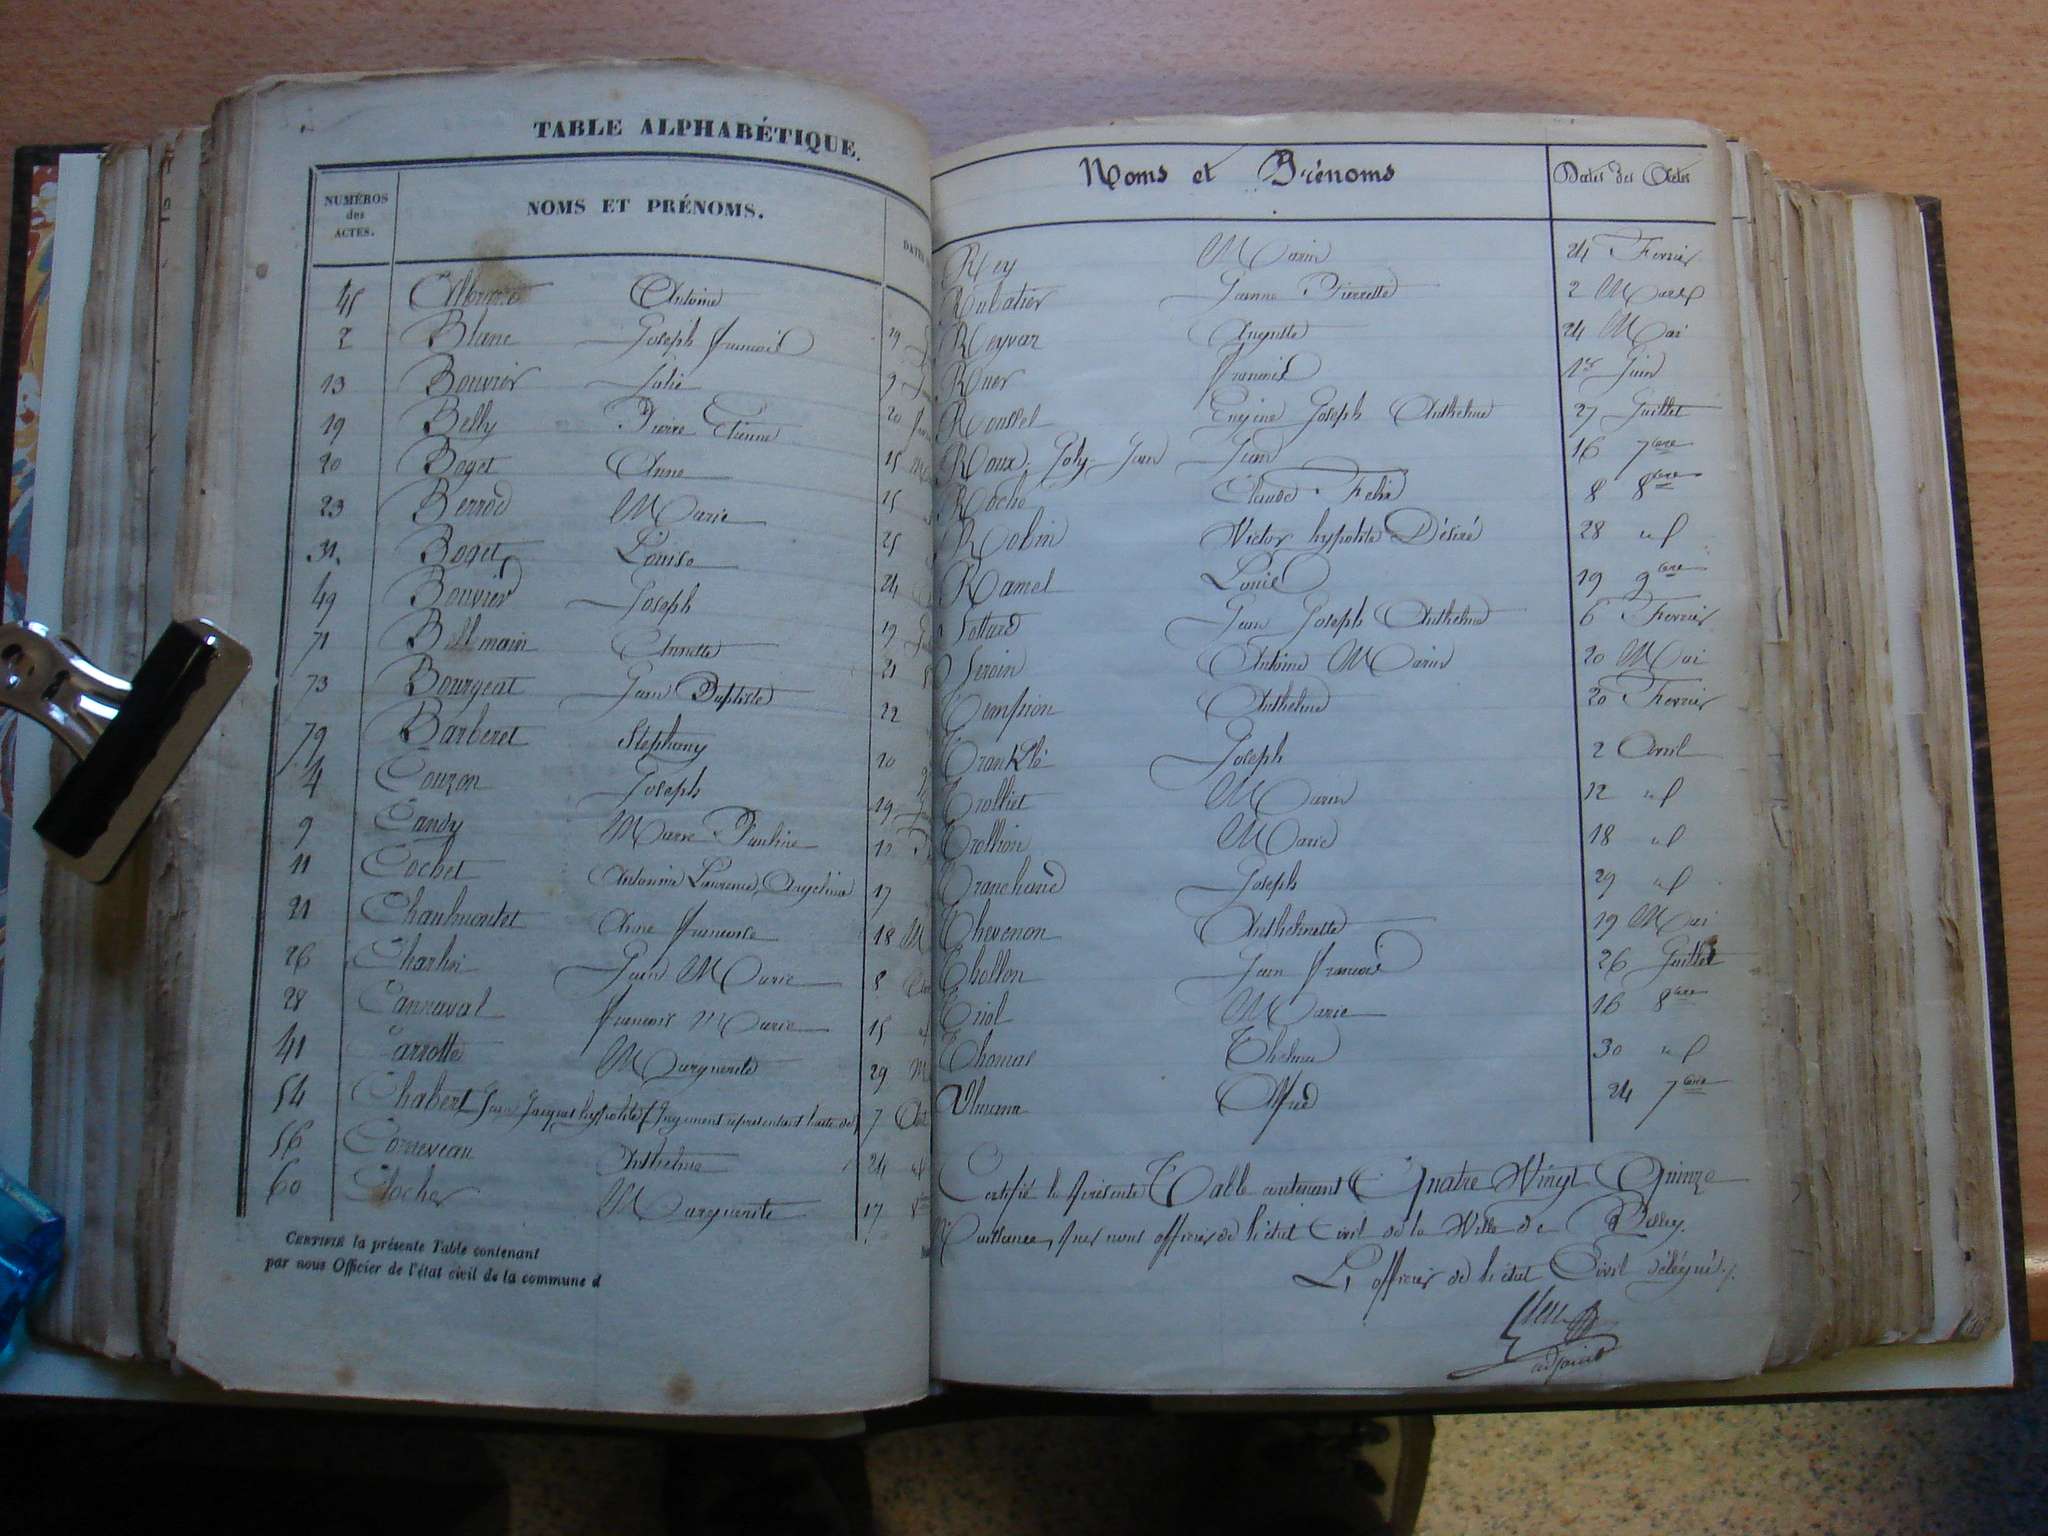 TABLE ALPHABÉTIQUE.
NUMÉROS
des
ACTES.
NOMS ET PRÉNOMS.
45 Antoine
2 Blanc Joseph françois 19
13 Bouvier Julie 9
19 Belly Pierre Etienne 20
20 Boget Anne 15
23 Berrod Marie 25
31. Boget Louise 25
49 Bouvier Joseph 24
71 Bellemain Annette 19
73 Bourgeat Jean Baptiste 21
79 Barberet Stephany 22
4 Couzon Joseph 10
9 Candy Marie Pauline 19
11 Cochet Antonine Laurence Angelina
21 Anne françoise 17
26 Charlin Jean Marie 18 M
28 Cannaval françois Marie 8
41 Carrotte Marguerite 15
54 Chabert Jean Jacques hypolite (Jugement représentant l'acte de) 29
56 Corneveau Anthelme 7
60 Clocher Marguerite 24
17
CERTIFIÉ la présente Table contenant
par nous Officier de l'état civil de la commune d
Noms et Prénoms
Dates des Actes
Rey Marin 24 Fevrier
Rubatier Jeanne Pierrette 2 Mars
Reyvar Auguste 24 Mai
Ruer françois 1er Juin
Roussel Engine Joseph Anthelme 27 Juillet
Roux, Joly Jean Jean 16 7bre
Roche Claude Felix 8 8bre
Robin Victor hypolite Désiré 28 id
Ramel Louis 19 9bre
Sottard Jean Joseph Anthelme 6 Fevrier
Siroin Antoine Marius 20 Mai
Tempion Anthelme 20 Fevrier
Joseph 2 Avril
Trolliet Marin 12 id
Trollion Marie 18 id
Tranchand Joseph 29 id
Thevenon Anthelmette 19 Mai
Thollon Jean françois 26 Juillet
Triol Marie 16 8bre
Thomas 30 id
Ulmann Alfred 24 7bre
Certifié la présente Table contenant Quatre Vingt Quinze
Naissances, par nous officier de l'état Civil de la Ville de Belley.
L'officier de l'état Civil délégué
adjoint